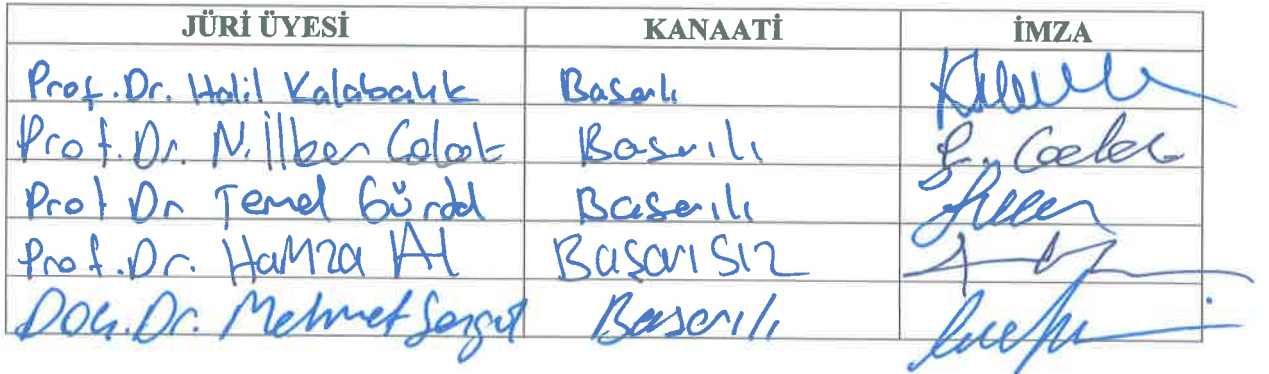 JÜRİ ÜYESİ KANAATİ İMZA
Prof. Dr. Halil Kalabalık Başarılı
Prof. Dr. N. İlker Çolak Başarılı
Prof Dr Temel Gürdal Başarılı
Prof. Dr. Hamza Al Başarısız
Doç. Dr. Mehmet Başarılı